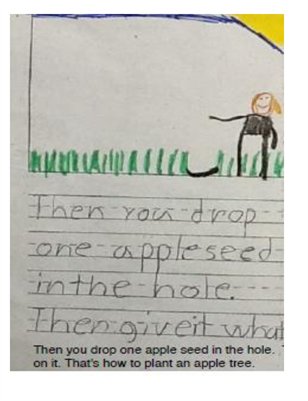 Then you drop
one apple seed
in the hole.
Then give it what
Then you drop one apple seed in the hole.
on it. That's how to plant an apple tree.